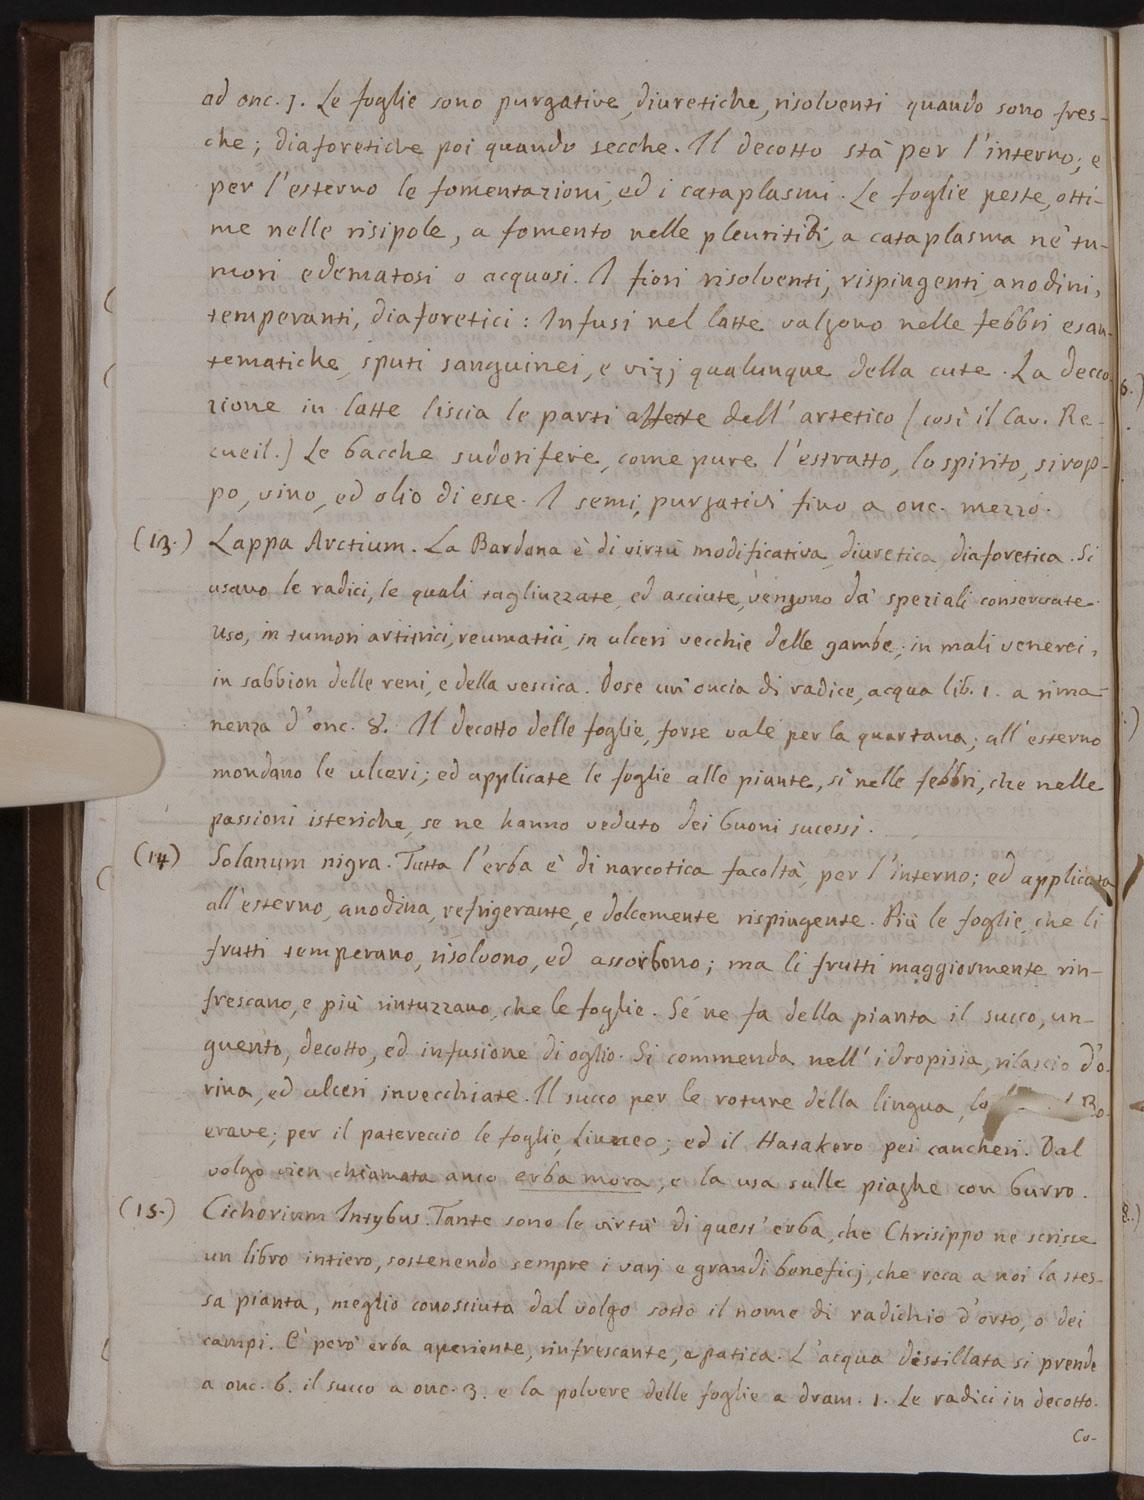 ad onc. j. Le foglie sono purgative, diuretiche, risolventi quando sono fres-
che; diaforetiche poi quando secche. Il decotto stà per l'interno; e
per l'esterno le fomentazioni, ed i cataplasmi. Le foglie peste, otti-
me nelle risipole, a fomento nelle pleuritidi, a cataplasma ne' tu-
mori edematosi o acquosi. I fiori risolventi, rispingenti, anodini,
temperanti, diaforetici: Infusi nel latte valgono nelle febbri esan-
tematiche, sputi sanguinei, e vizj qualunque della cute. La decco-
zione in latte liscia le parti affette dall' artetico (così il Cav. Re-
cueil.) Le bacche sudorifere, come pure l'estratto, lo spirito, sirop-
po, vino, ed olio di esse. I semi, purgativi fino a onc. mezzo.
(13.) Lappa Arctium. La Bardana è di virtù modificativa, diuretica, diaforetica. Si
usano le radici, le quali tagliuzzate, ed asciute, vengono da' speziali conservate.
Uso, in tumori artitrici, reumatici, in ulceri vecchie delle gambe, in mali venerei,
in sabbion delle reni, e della vescica. Dose un' oncia di radice, acqua lib. 1. a rima-
nenza d'onc. 8. Il decotto delle foglie, forse vale per la quartana; all' esterno
mondano le ulceri; ed applicate le foglie alle piante, sì nelle febbri, che nelle
passioni isteriche, se ne hanno veduto dei buoni sucessi.
(14) Solanum nigra. Tutta l'erba è di narcotica facoltà, per l'interno; ed applicata
all' esterno, anodina, refrigerante, e dolcemente rispingente. Più le foglie, che li
frutti temperano, risolvono, ed assorbono; ma li frutti maggiormente rin-
frescano, e più rintuzzano, che le foglie. Se ne fa della pianta il succo, un-
guento, decotto, ed infusione di oglio. Si commenda nell' idropisia, rilascio d'o-
rina, ed ulceri invecchiate. Il succo per le roture della lingua, lo Bo-
erave; per il patereccio le foglie, Linneo; ed il Hatakero pei cancheri. Dal
volgo vien chiamata anco erba mora, e la usa sulle piaghe con burro.
(15.) Cichorium Intybus. Tante sono le virtù di quest' erba, che Chrisippo ne scrisse
un libro intiero, sostenendo sempre i varj e grandi beneficj, che reca a noi la stes-
sa pianta, meglio conosciuta dal volgo sotto il nome di radichio d'orto, o dei
campi. E' però erba aperiente, rinfrescante, epatica. L'acqua distillata si prende
a onc. 6. il succo a onc. 3. e la polvere delle foglie a dram. 1. Le radici in decotto.
Co-